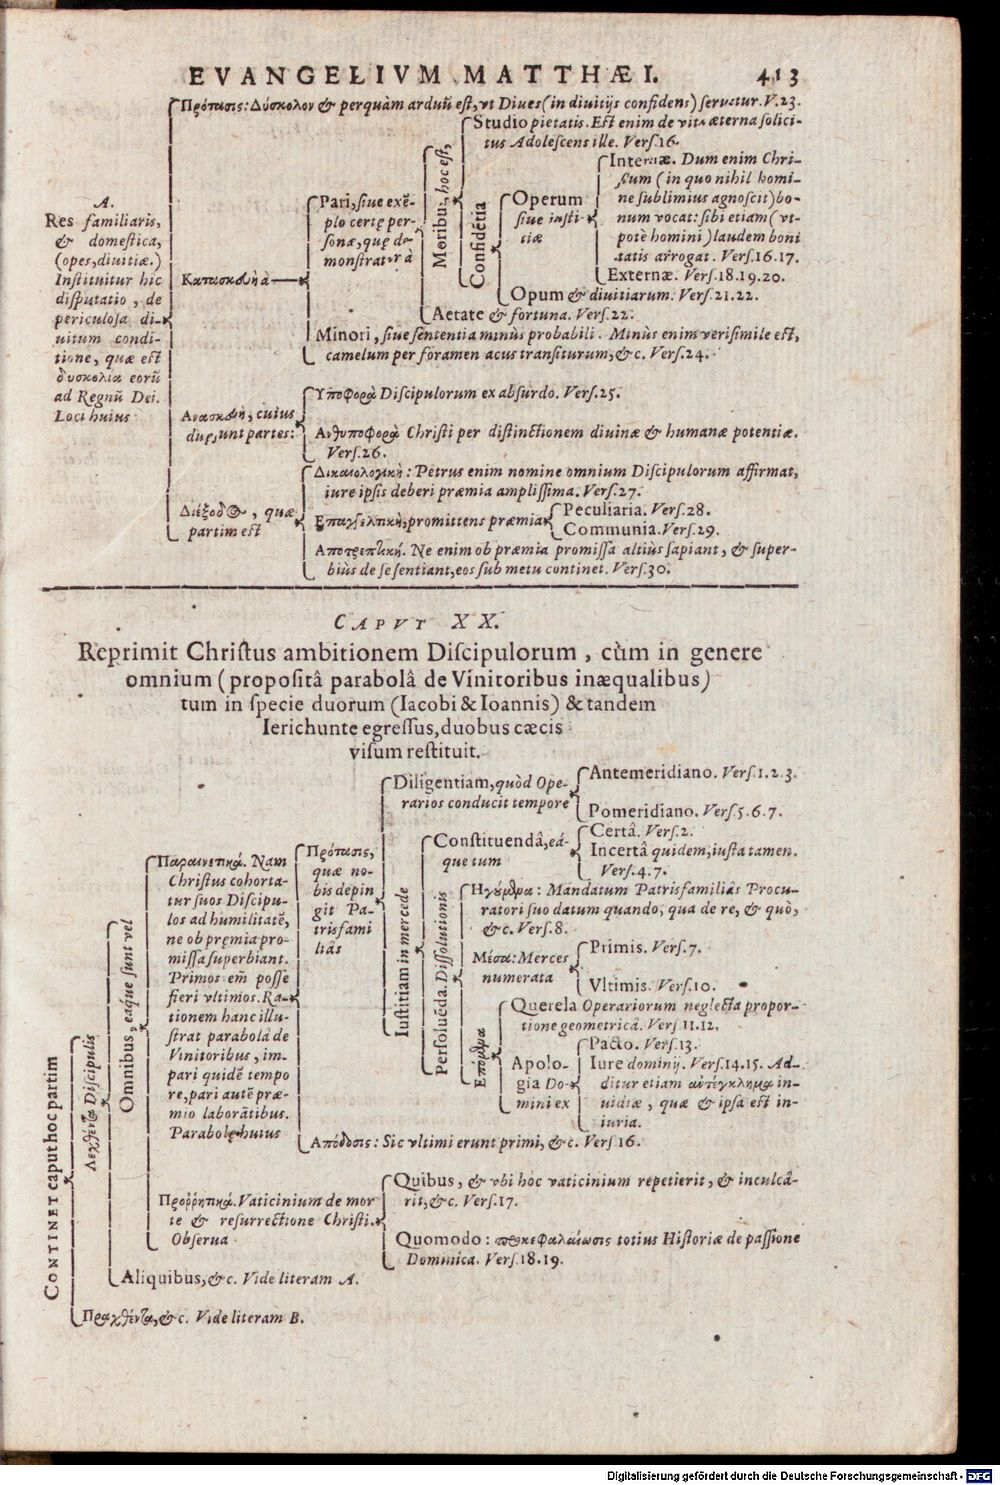 EVANGELIVM MATTHÆI. 413
Πρότασις: Δύσκολον & perquàm arduũ est, vt Diues (in diuitijs confidens) seruetur. V. 23.
A.
Res familiaris,
& domestica,
(opes, diuitiæ.)
Instituitur hic
disputatio, de
periculosa di-
uitum condi-
tione, quæ est
δυσκολία eorũ
ad Regnũ Dei.
Loci huius
Κατασκδυὴ à
Pari, siue exẽ-
plo certę per-
sonæ, quę de-
monstratur à
Moribus, hoc est,
Studio pietatis. Est enim de vita æterna solici-
tus Adolescens ille. Vers. 16.
Confidẽtia
Operum
siue iusti-
tiæ
Internæ. Dum enim Chri-
stum (in quo nihil homi-
ne sublimius agnoscit) bo-
num vocat: sibi etiam (vt-
potè homini) laudem boni
tatis arrogat. Vers. 16. 17.
Externæ. Vers. 18. 19. 20.
Opum & diuitiarum. Vers. 21. 22.
Aetate & fortuna. Vers. 22.
Minori, siue sententia minùs probabili. Minùs enim verisimile est,
camelum per foramen acus transiturum, &c. Vers. 24.
Ανασκδυὴ, cuius
duę sunt partes:
Υποφορὰ Discipulorum ex absurdo. Vers. 25.
Ανθυποφορὰ Christi per distinctionem diuinæ & humanæ potentiæ.
Vers. 26.
Διέξοδος, quæ
partim est
Δικαιολογικὴ: Petrus enim nomine omnium Discipulorum affirmat,
iure ipsis deberi præmia amplissima. Vers. 27.
Επαγγελτικὴ, promittens præmia
Peculiaria. Vers. 28.
Communia. Vers. 29.
Αποτρεπτικὴ. Ne enim ob præmia promissa altiùs sapiant, & super-
biùs de se sentiant, eos sub metu continet. Vers. 30.
CAPVT XX.
Reprimit Christus ambitionem Discipulorum, cùm in genere
omnium (propositâ parabolâ de Vinitoribus inæqualibus)
tum in specie duorum (Iacobi & Ioannis) & tandem
Ierichunte egressus, duobus cæcis
visum restituit.
CONTINET caput hoc partim
Λεχθέντα Discipulis
Omnibus, eaq́ue sunt vel
Παραινετικά. Nam
Christus cohorta-
tur suos Discipu-
los ad humilitatẽ,
ne ob pręmia pro-
missa superbiant.
Primos em̃ posse
fieri vltimos. Ra-
tionem hanc illu-
strat parabola de
Vinitoribus, im-
pari quidẽ tempo
re, pari autẽ præ-
mio laborãtibus.
Parabolę huius
Πρότασις,
quæ no-
bis depin
git Pa-
trisfami
liâs
Diligentiam, quòd Ope-
rarios conducit tempore
Antemeridiano. Vers. 1. 2. 3.
Pomeridiano. Vers. 5. 6. 7.
Iustitiam in mercede
Constituendâ, eá-
que tum
Certâ. Vers. 2.
Incertâ quidem, iusta tamen.
Vers. 4. 7.
Persoluẽda. Dissolutionis
Ηγούμθμα: Mandatum Patrisfamiliâs Procu-
ratori suo datum quando, qua de re, & quò,
&c. Vers. 8.
Μέσα: Merces
numerata
Primis. Vers. 7.
Vltimis. Vers. 10.
Επόμθμα
Querela Operariorum neglecta propor-
tione geometricâ. Vers. 11. 12.
Apolo-
gia Do-
mini ex
Pacto. Vers. 13.
Iure dominij. Vers. 14. 15. Ad-
ditur etiam αὐτέγκλημα in-
uidiæ, quæ & ipsa est in-
iuria.
Απόδοσις: Sic vltimi erunt primi, &c. Vers. 16.
Προῤῥητικά. Vaticinium de mor
te & resurrectione Christi.
Obserua
Quibus, & vbi hoc vaticinium repetierit, & inculcâ-
rit, &c. Vers. 17.
Quomodo: προκεφαλαίωσις totius Historiæ de passione
Dominica. Vers. 18. 19.
Aliquibus, &c. Vide literam A.
Πραχθέντα, &c. Vide literam B.
Digitalisierung gefördert durch die Deutsche Forschungsgemeinschaft - DFG